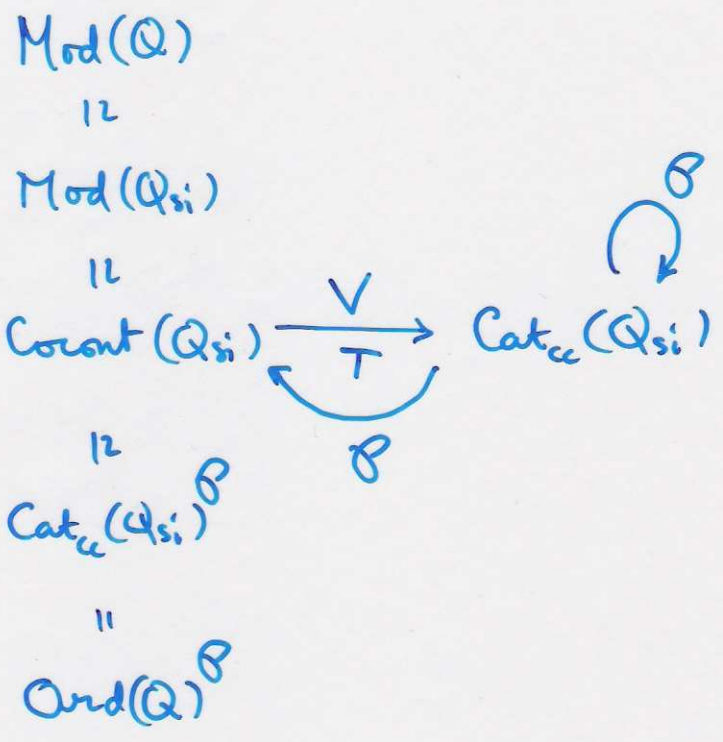 Mod(Q)
≃
Mod(Q_si) 𝒫
≃ V
Cocont(Q_si) ⊤ Cat_cc(Q_si)
≃ 𝒫
Cat_cc(Q_si)^𝒫
=
Ord(Q)^𝒫